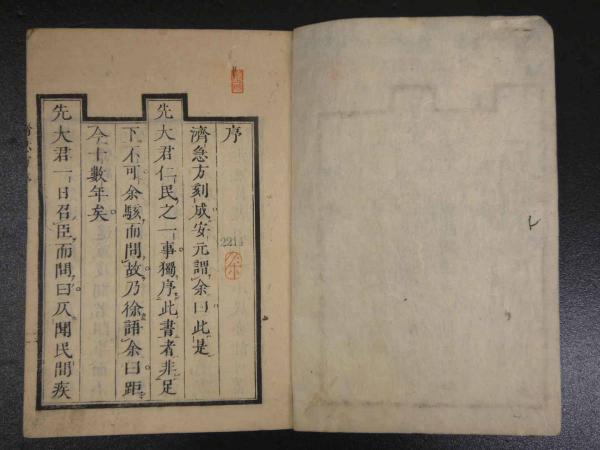 序
濟急方刻成安元謂余曰此是
先大君仁民之一事獨序此書者非足
下不可余駭而問故乃徐語余曰距
今十數年矣
先大君一日召臣而問曰仄聞民間疾
2214